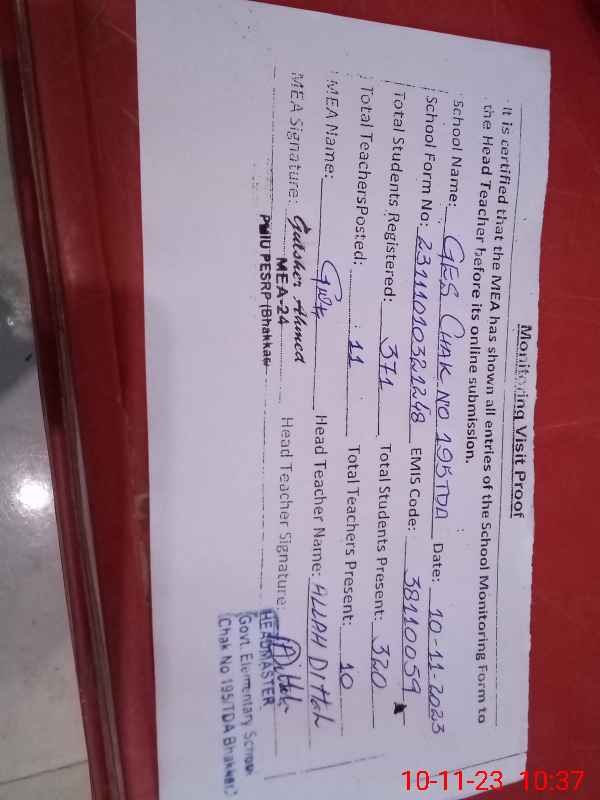 Monitoring Visit Proof
It is certified that the MEA has shown all entries of the School Monitoring Form to
the Head Teacher before its online submission.
School Name: GES CHAK NO 195TDA Date: 10-11-2023
School Form No: 23111010321248 EMIS Code: 38110059
Total Students Registered: 371 Total Students Present: 320
Total TeachersPosted: 11 Total Teachers Present: 10
MEA Name: Head Teacher Name: ALLAH DITTAH
MEA Signature: Gulsher Ahmed Head Teacher Signature: A.Dittah
MEA-24
PMIU PESRP (Bhakkar)
HEADMASTER
Govt. Elementary School
Chak No 195/TDA Bhakkar
10-11-23 10:37